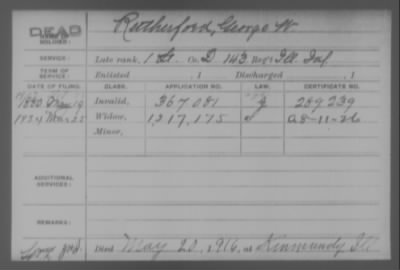 DEAD
NAME OF SOLDIER: Rutherford, George W.
SERVICE: Late rank, 1 St. Co. D 143 Reg't Ill Inf.
TERM OF SERVICE: Enlisted , 1 Discharged , 1
DATE OF FILING. CLASS. APPLICATION NO. LAW. CERTIFICATE NO.
1880 May 19 Invalid, 367 081 289 239
1924 Mar 25 Widow, 1,217,175 A 8-11-26
Minor,
ADDITIONAL SERVICES:
REMARKS:
Died May 20, 1916, at Kinmundy Ill